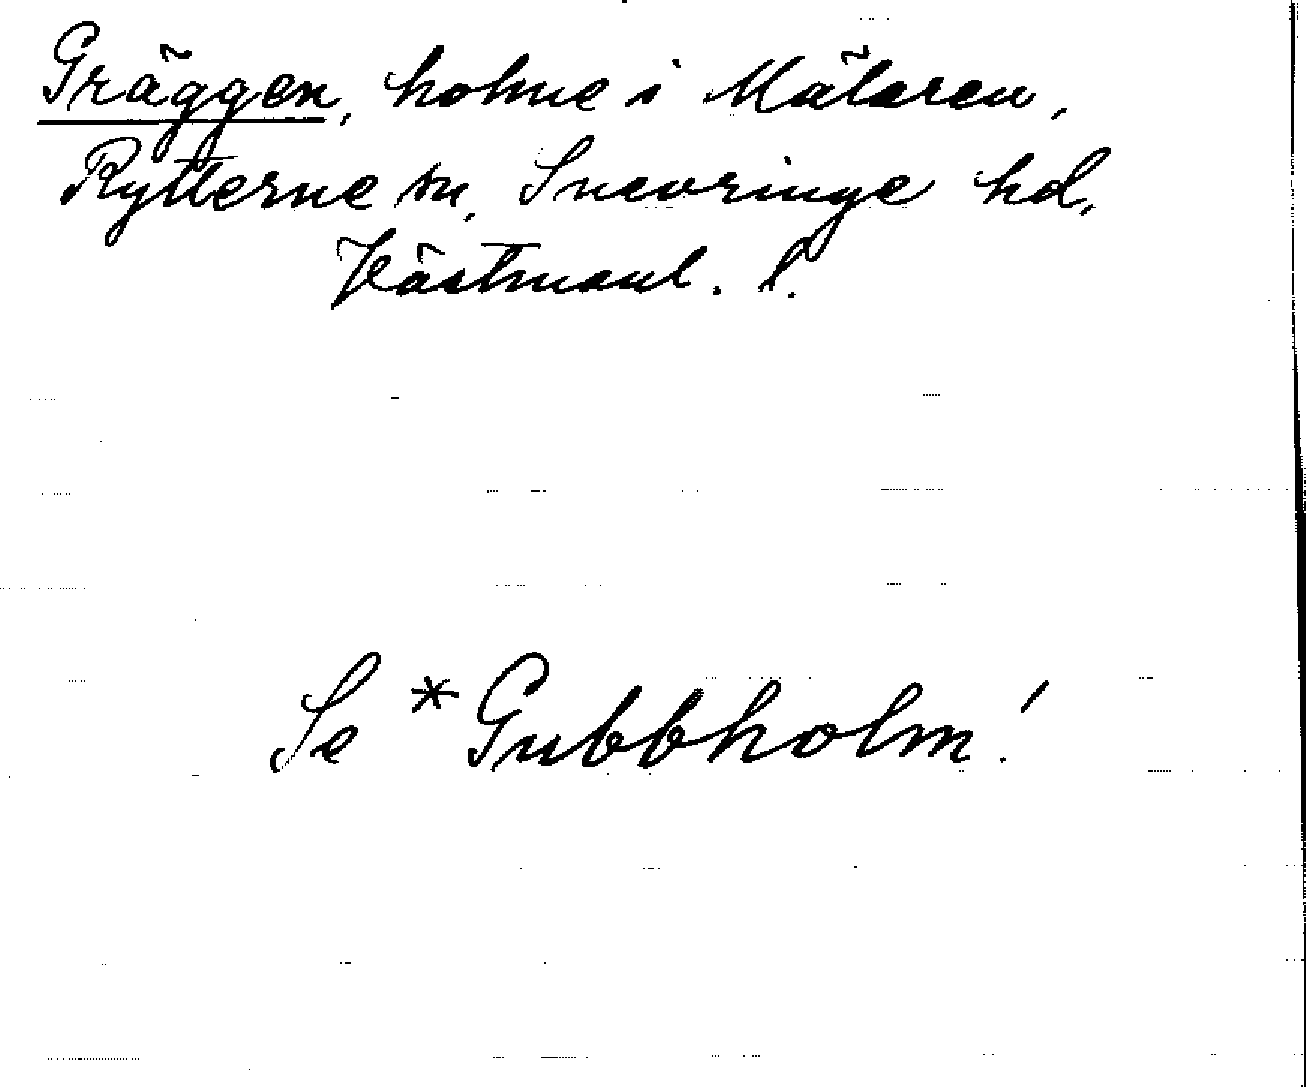 Gräggen, holme i Mälaren,
Rytterne sn, Snevringe hd,
Västmanl. l.
Se *Gubbholm!